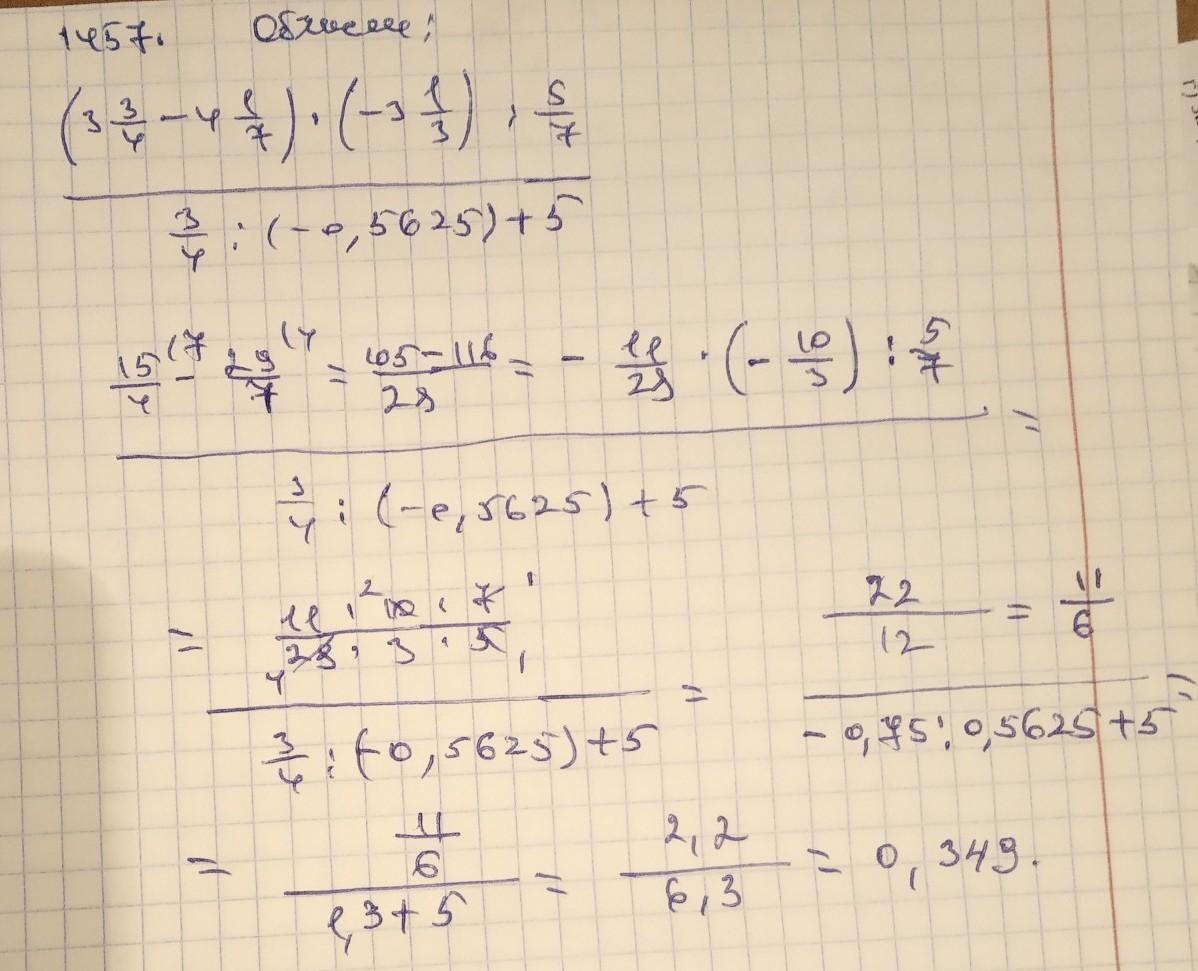 1457. Обчисли:
(3 3/4 - 4 1/7) · (-3 1/3) : 5/7
3/4 : (-0,5625) + 5
15/4 (7 - 29/7 (4 = 105-116/28 = - 11/28 · (- 10/3) : 5/7
=
3/4 : (-0,5625) + 5
= 11 · 10 · 7/28 · 3 · 5 2 1 4 1
22/12 = 11/6
3/4 : (-0,5625) + 5 = - 0,75 : 0,5625 + 5 =
= 11/6 / 1,3 + 5 = 2,2 / 6,3 = 0,349.